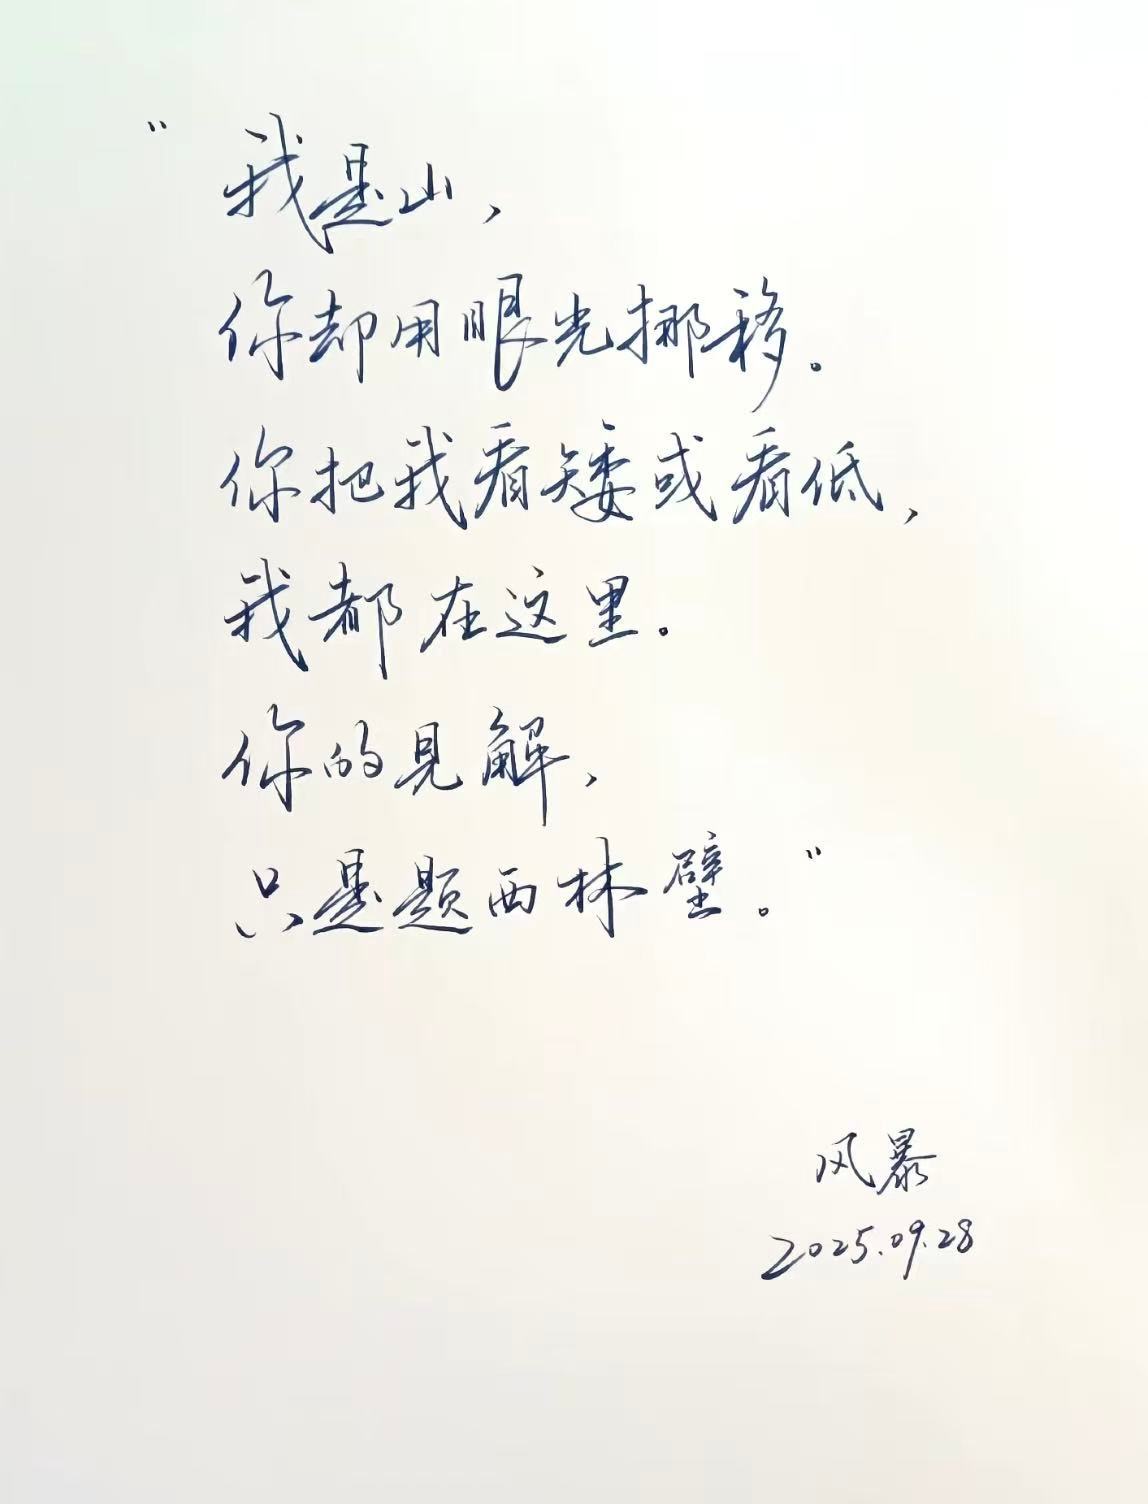 “我是山，
你却用眼光挪移。
你把我看矮或看低，
我都在这里。
你的见解，
只是题西林壁。”
风暴
2025.09.28